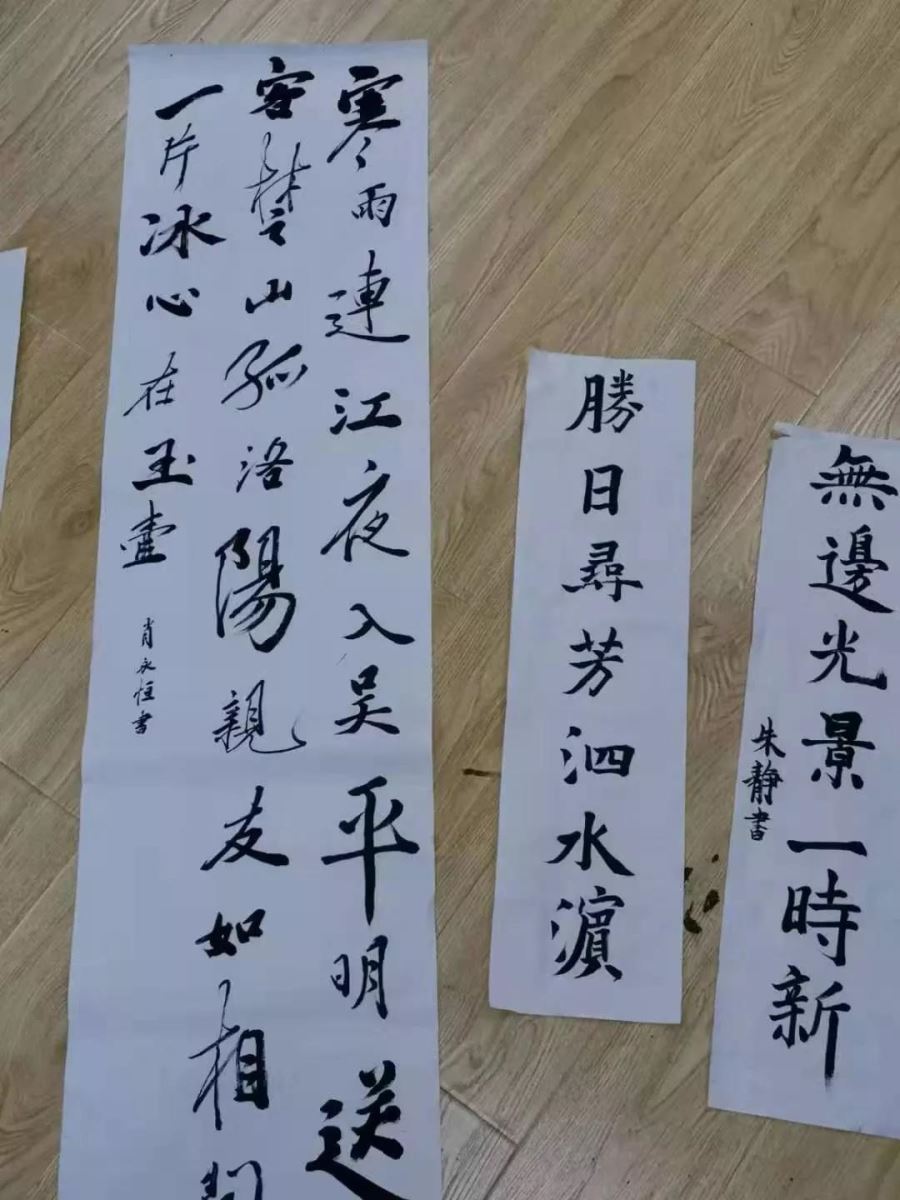 寒雨連江夜入吴平明送
客楚山孤洛陽親友如相問
一片冰心在玉壺
肖永恒書
勝日尋芳泗水濱
無邊光景一時新
朱靜書